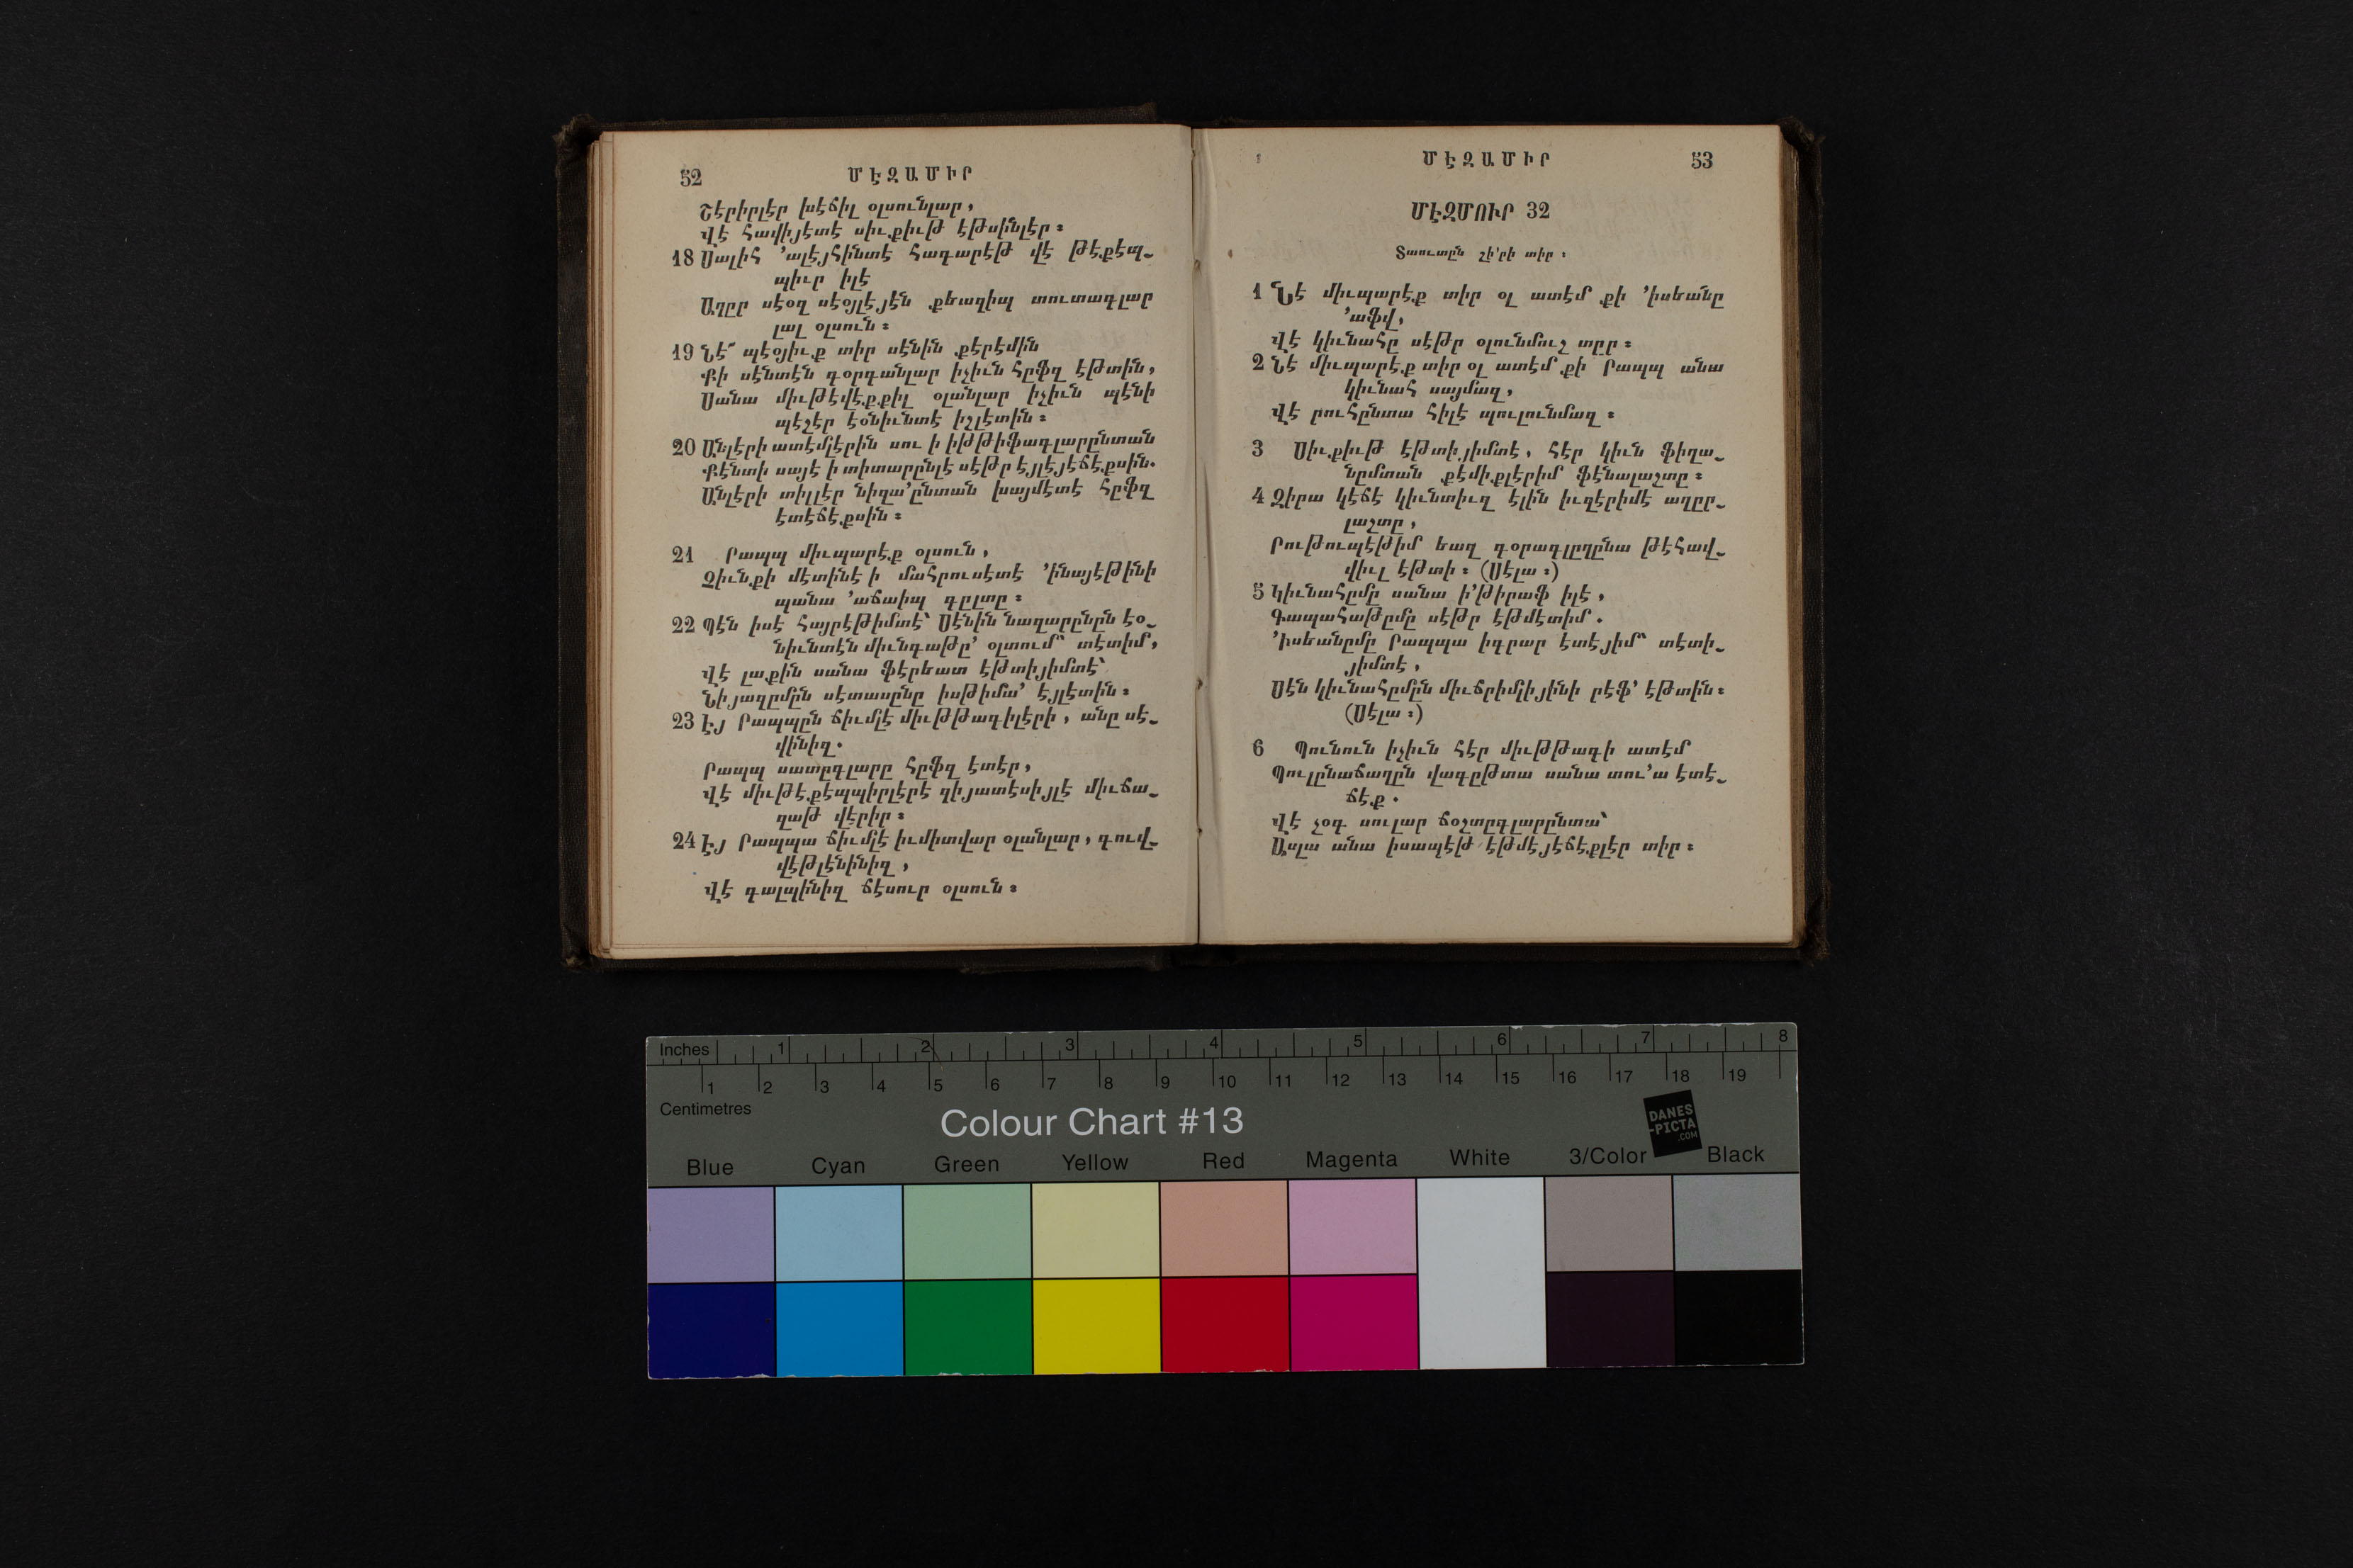 52
ՄԷԶԱՄԻՐ
Շէրիրլէր խէճիլ օլսունլար,
Վէ հավիյէտէ սիւքիւթ էթսինլէր։
18 Սալիհ ՚ալէյհինտէ հագարէթ վէ թէքէպ֊
պիւր իլէ
Աղըր սէօզ սէօյլէյէն քեազիպ տուտագլար
լալ օլսուն։
19 Նէ՜ պէօյիւք տիր սէնին քէրէմին
Քի սէնտէն գօրգանլար իչիւն հըֆզ էթտին,
Սանա միւթէվէքքիլ օլանլար իչիւն պէնի
պէշէր էօնիւնտէ իշլէտին։
20 Անլէրի ատէմլէրին սու ի իթթիֆագլարընտան
Քէնտի սայէ ի տիտարընլէ սէթր էյլէյէճէքսին.
Անլէրի տիլլէր նիզա՚ընտան խայմէտէ հըֆզ
էտէճէքսին։
21 Րապպ միւպարէք օլսուն,
Չիւնքի մէտինէ ի մահրուսէտէ ՚ինայէթինի
պանա ՚աճաիպ գըլտը։
22 Պէն իսէ հայրէթիմտէ՝ Սէնին նազարընըն էօ֊
նիւնտէն միւնգաթը՚ օլտում՝ տէտիմ,
Վէ լաքին սանա ֆէրեատ էթտիյիմտէ՝
Նիյազըմըն սէտասընը իսթիմա՚ էյլէտին։
23 Էյ Րապպըն ճիւմլէ միւթթագիլէրի, անը սէ֊
վինիզ.
Րապպ սատըգլարը հըֆզ էտէր,
Վէ միւթէքէպպիրլէրէ զիյատէսիյլէ միւճա֊
զաթ վէրիր։
24 Էյ Րապպա ճիւմլէ իւմիտվար օլանլար, գուվ֊
վէթլէնինիզ,
Վէ գալպինիզ ճէսուր օլսուն։
ՄԷԶԱՄԻՐ
53
ՄԷԶՄՈՒՐ 32
Տաուտըն շի՚րի տիր.
1 Նէ միւպարէք տիր օլ ատէմ քի ՚իսեանը
՚աֆվ,
Վէ կիւնահը սէթր օլունմուշ տըր։
2 Նէ միւպարէք տիր օլ ատէմ քի Րապպ անա
կիւնահ սայմազ,
Վէ րուհընտա հիլէ պուլունմազ։
3 Սիւքիւթ էթտիյիմտէ, հէր կիւն ֆիղա֊
նըմտան քէմիքլէրիմ ֆէնալաշտը։
4 Զիրա կէճէ կիւնտիւզ էլին իւզէրիմէ աղըր֊
լաշտը,
Րութուպէթիմ եազ գօրագլըղընա թէհավ֊
վիւլ էթտի։ (Սէլա։)
5 Կիւնահըմը սանա ի՚թիրաֆ իլէ,
Գապահաթըմը սէթր էթմէտիմ.
՚Իսեանըմը Րապպա իգրար էտէյիմ՝ տէտի֊
յիմտէ,
Սէն կիւնահըմըն միւճրիմլիյինի րէֆ՚ էթտին։
(Սէլա։)
6 Պունուն իչիւն հէր միւթթագի ատէմ
Պուլընաճաղըն վագըթտա սանա տու՚ա էտէ֊
ճէք.
Վէ չօգ սուլար ճօշտըգլարընտա՝
Ասլա անա իսապէթ էթմէյէճէքլէր տիր։
Inches 1 2 3 4 5 6 7 8
1 2 3 4 5 6 7 8 9 10 11 12 13 14 15 16 17 18 19
Centimetres
Colour Chart #13
DANES
-PICTA
.COM
Blue Cyan Green Yellow Red Magenta White 3/Color Black